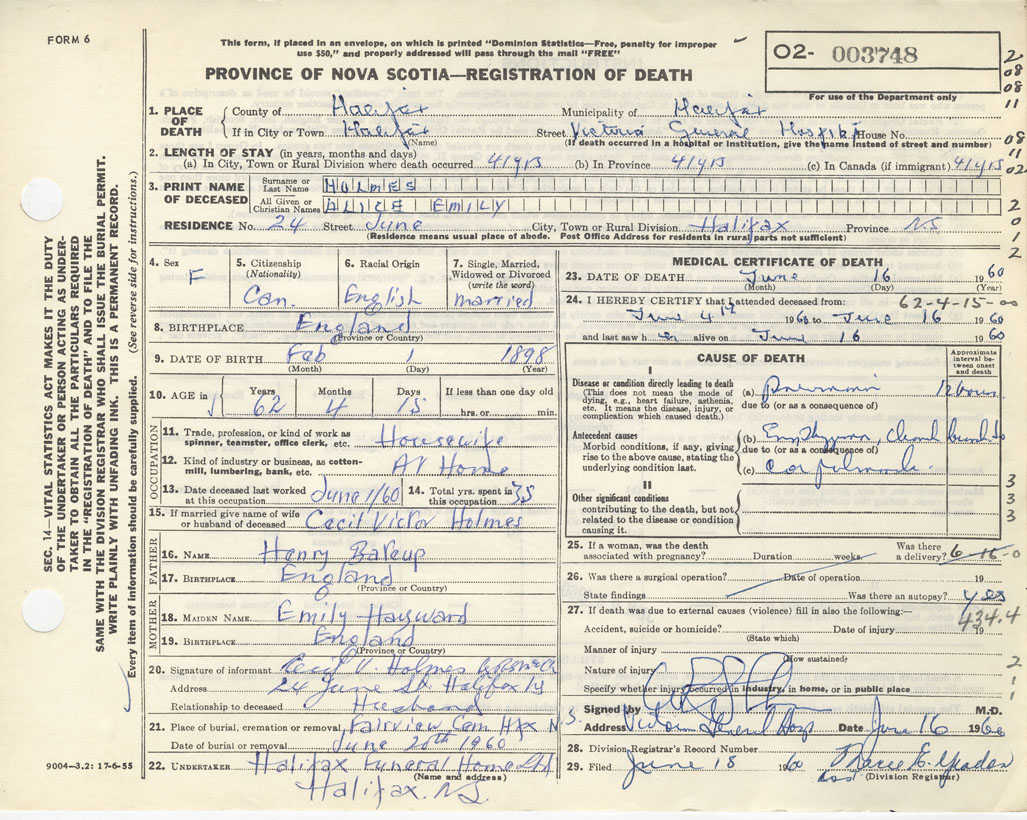 FORM 6
This form, if placed in an envelope, on which is printed "Dominion Statistics—Free, penalty for improper
use $50," and properly addressed will pass through the mail "FREE"
02- 003748
For use of the Department only
PROVINCE OF NOVA SCOTIA—REGISTRATION OF DEATH
1. PLACE OF DEATH County of Halifax Municipality of Halifax
If in City or Town Halifax (Name) Street Victoria General Hospital House No.
(If death occurred in a hospital or institution, give the name instead of street and number)
2. LENGTH OF STAY (in years, months and days)
(a) In City, Town or Rural Division where death occurred 41 yrs (b) In Province 41 yrs (c) In Canada (if immigrant) 41 yrs
3. PRINT NAME OF DECEASED Surname or Last Name HOLMES
All Given or Christian Names ALICE EMILY
RESIDENCE No. 24 Street June City, Town or Rural Division Halifax Province N.S.
(Residence means usual place of abode. Post Office Address for residents in rural parts not sufficient)
SEC. 14—VITAL STATISTICS ACT MAKES IT THE DUTY
OF THE UNDERTAKER OR PERSON ACTING AS UNDER-
TAKER TO OBTAIN ALL THE PARTICULARS REQUIRED
IN THE "REGISTRATION OF DEATH" AND TO FILE THE
SAME WITH THE DIVISION REGISTRAR WHO SHALL ISSUE THE BURIAL PERMIT.
WRITE PLAINLY WITH UNFADING INK. THIS IS A PERMANENT RECORD.
Every item of information should be carefully supplied. (See reverse side for instructions.)
4. Sex F
5. Citizenship (Nationality) Can.
6. Racial Origin English
7. Single, Married, Widowed or Divorced (write the word) married
8. BIRTHPLACE England
(Province or Country)
9. DATE OF BIRTH Feb 1 1898
(Month) (Day) (Year)
10. AGE in Years 62 Months 4 Days 15 If less than one day old hrs. or min.
OCCUPATION
11. Trade, profession, or kind of work as spinner, teamster, office clerk, etc. Housewife
12. Kind of industry or business, as cotton-mill, lumbering, bank, etc. At Home
13. Date deceased last worked at this occupation June 1/60 14. Total yrs. spent in this occupation 35
15. If married give name of wife or husband of deceased Cecil Victor Holmes
FATHER
16. NAME Henry
17. BIRTHPLACE England
(Province or Country)
MOTHER
18. MAIDEN NAME Emily Hayward
19. BIRTHPLACE England
(Province or Country)
20. Signature of informant Cecil V. Holmes
Address 24 June St Halifax
Relationship to deceased Husband
21. Place of burial, cremation or removal Fairview Cem Hfx N.S.
Date of burial or removal June 20th 1960
22. UNDERTAKER Halifax Funeral Home Ltd
(Name and address)
Halifax. N.S.
9004—3.2: 17-6-55
MEDICAL CERTIFICATE OF DEATH
23. DATE OF DEATH June 16 1960
(Month) (Day) (Year)
24. I HEREBY CERTIFY that I attended deceased from: 62-4-15-00
June 4th 1960 to June 16 1960
and last saw h er alive on June 16 1960
CAUSE OF DEATH
Approximate interval between onset and death
I
Disease or condition directly leading to death
(This does not mean the mode of dying, e.g., heart failure, asthenia, etc. It means the disease, injury, or complication which caused death.)
(a) 12 hours
due to (or as a consequence of)
Antecedent causes
Morbid conditions, if any, giving rise to the above cause, stating the underlying condition last.
(b) Emphysema,
due to (or as a consequence of)
(c) cor pulmonale
II
Other significant conditions
contributing to the death, but not related to the disease or condition causing it.
25. If a woman, was the death associated with pregnancy? Duration weeks. Was there a delivery? 6-16-0
26. Was there a surgical operation? Date of operation 19
State findings Was there an autopsy? yes
27. If death was due to external causes (violence) fill in also the following:— 434.4
Accident, suicide or homicide? Date of injury 19
(State which)
Manner of injury
(How sustained)
Nature of injury
Specify whether injury occurred in industry, in home, or in public place
Signed by M.D.
Address Victoria General Hosp Date June 16 1960
28. Division Registrar's Record Number
29. Filed June 18 1960
(Division Registrar)
2
08
08
11
08
11
02
2
0
1
2
3
3
3
2
1
1